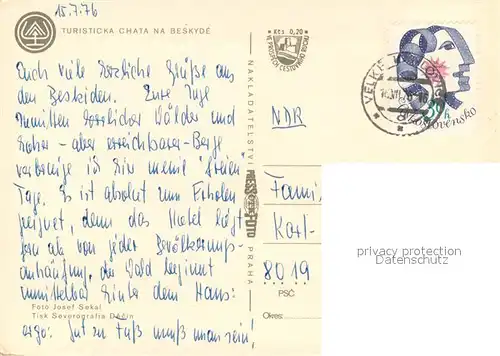 15.7.76
TURISTICKÁ CHATA NA BESKYDĚ
Kčs 0,20
VE PROSPĚCH CESTOVNÍHO RUCHU
VELKÉ
Československo
NAKLADATELSTVÍ PRESSFOTO PRAHA
Euch viele herzliche Grüße aus
den Beskiden. Eure Tage
inmitten herrlicher Wälder und
hoher - aber erreichbarer - Berge
verbringe ich hier meine "freien"
Tage. Es ist absolut zum Erholen
geeignet, denn das Hotel liegt
fern ab von jeder Bevölkerungs-
anhäufung, der Wald beginnt
unmittelbar hinter dem Haus:
ergo: gut zu Fuß muß man sein!
NDR
Fami
Karl-
8019
PSČ
Okres:
Foto Josef Sekal
Tisk Severografia Děčín
privacy protection
watermark